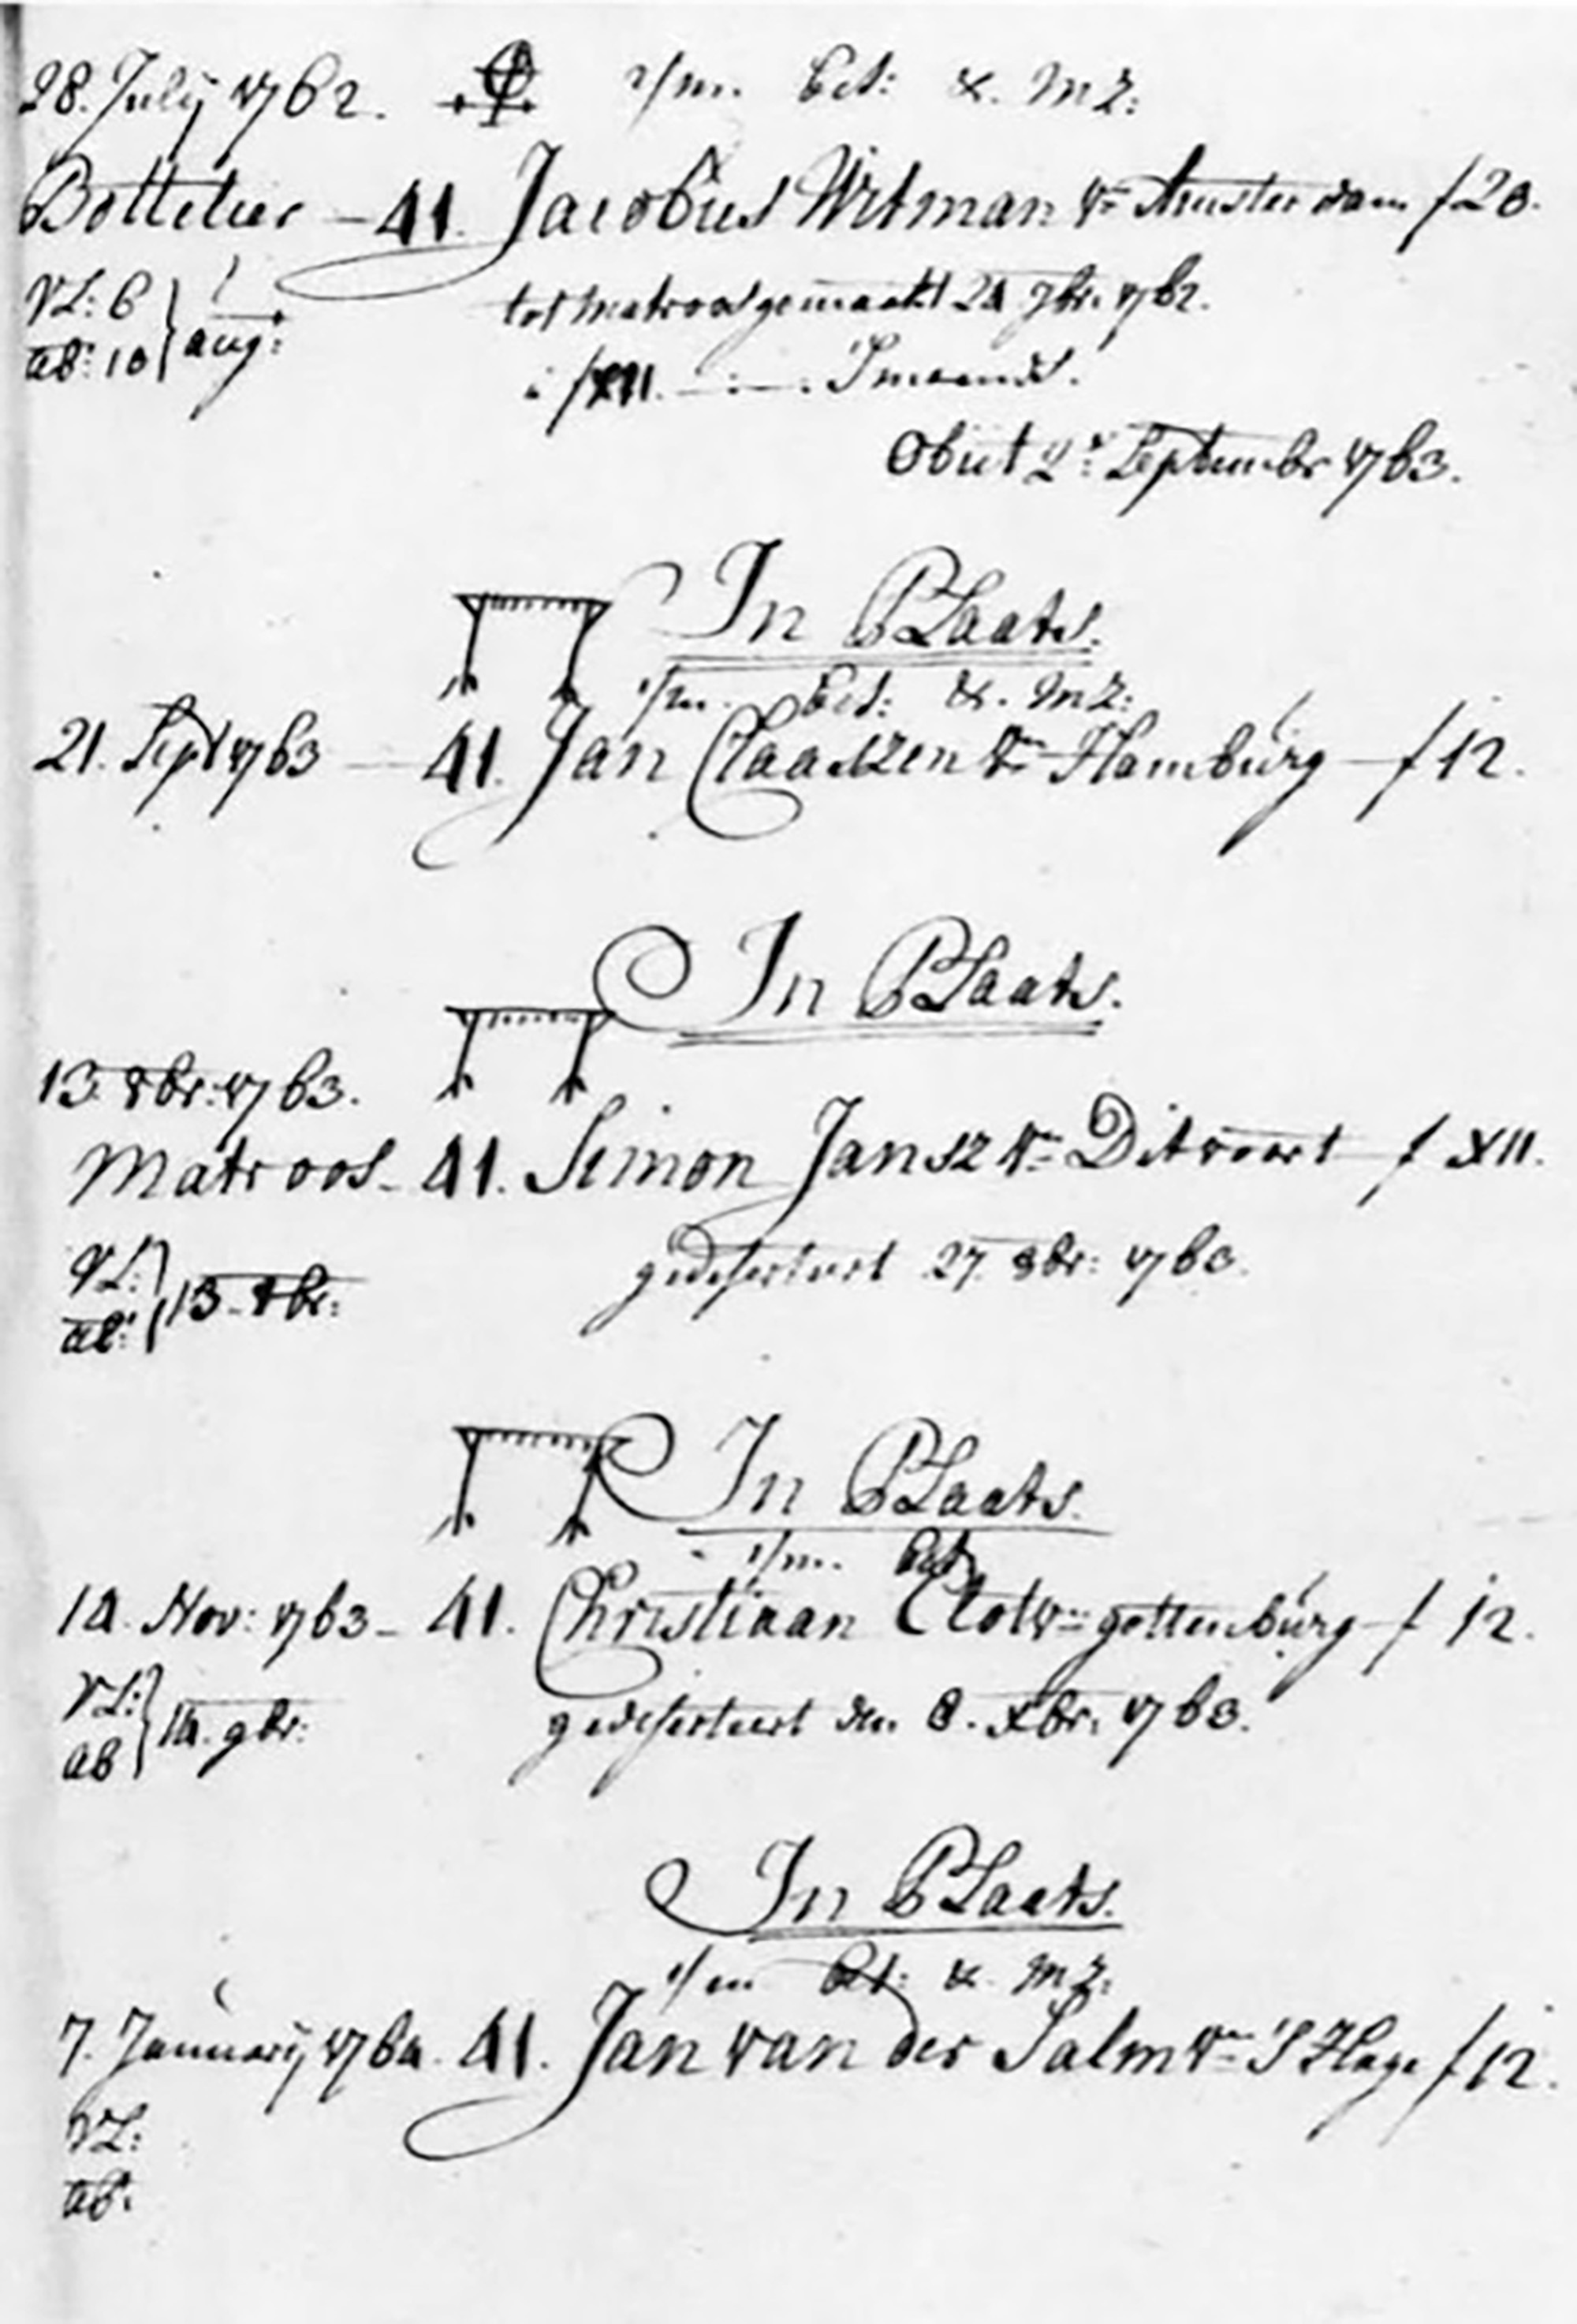 28. July 1762. 2/m. bed: &. MZ:
Bottelier - 41. Jacobus Witman Vn Amsterdam f 20.
VL: 6 tot Matroos gemaakt 24 7br. 1762.
ab: 10 aug: à f XII. Smaands.
Obiit 2e Septembr 1763.
In Plaats.
2/m. bed: &. MZ:
21. Sept 1763 - 41. Jan Claaszen Vn Hamburg - f 12.
In Plaats.
13. 8br: 1763.
Matroos - 41. Simon Jansz Vn f XII.
VL: gedeserteert 27. 8br: 1763.
ab: 13. 8br:
In Plaats.
2/m. bed
14. Nov: 1763 - 41. Christiaan Clot Vn gottenburg - f 12.
VL: gedeserteert den 8. Xbr. 1763.
ab 14. 9br:
In Plaats.
2/m bed: &. MZ:
7. January 1764. 41. Jan van der Salm Vn 'S Hage f 12.
VL:
ab: